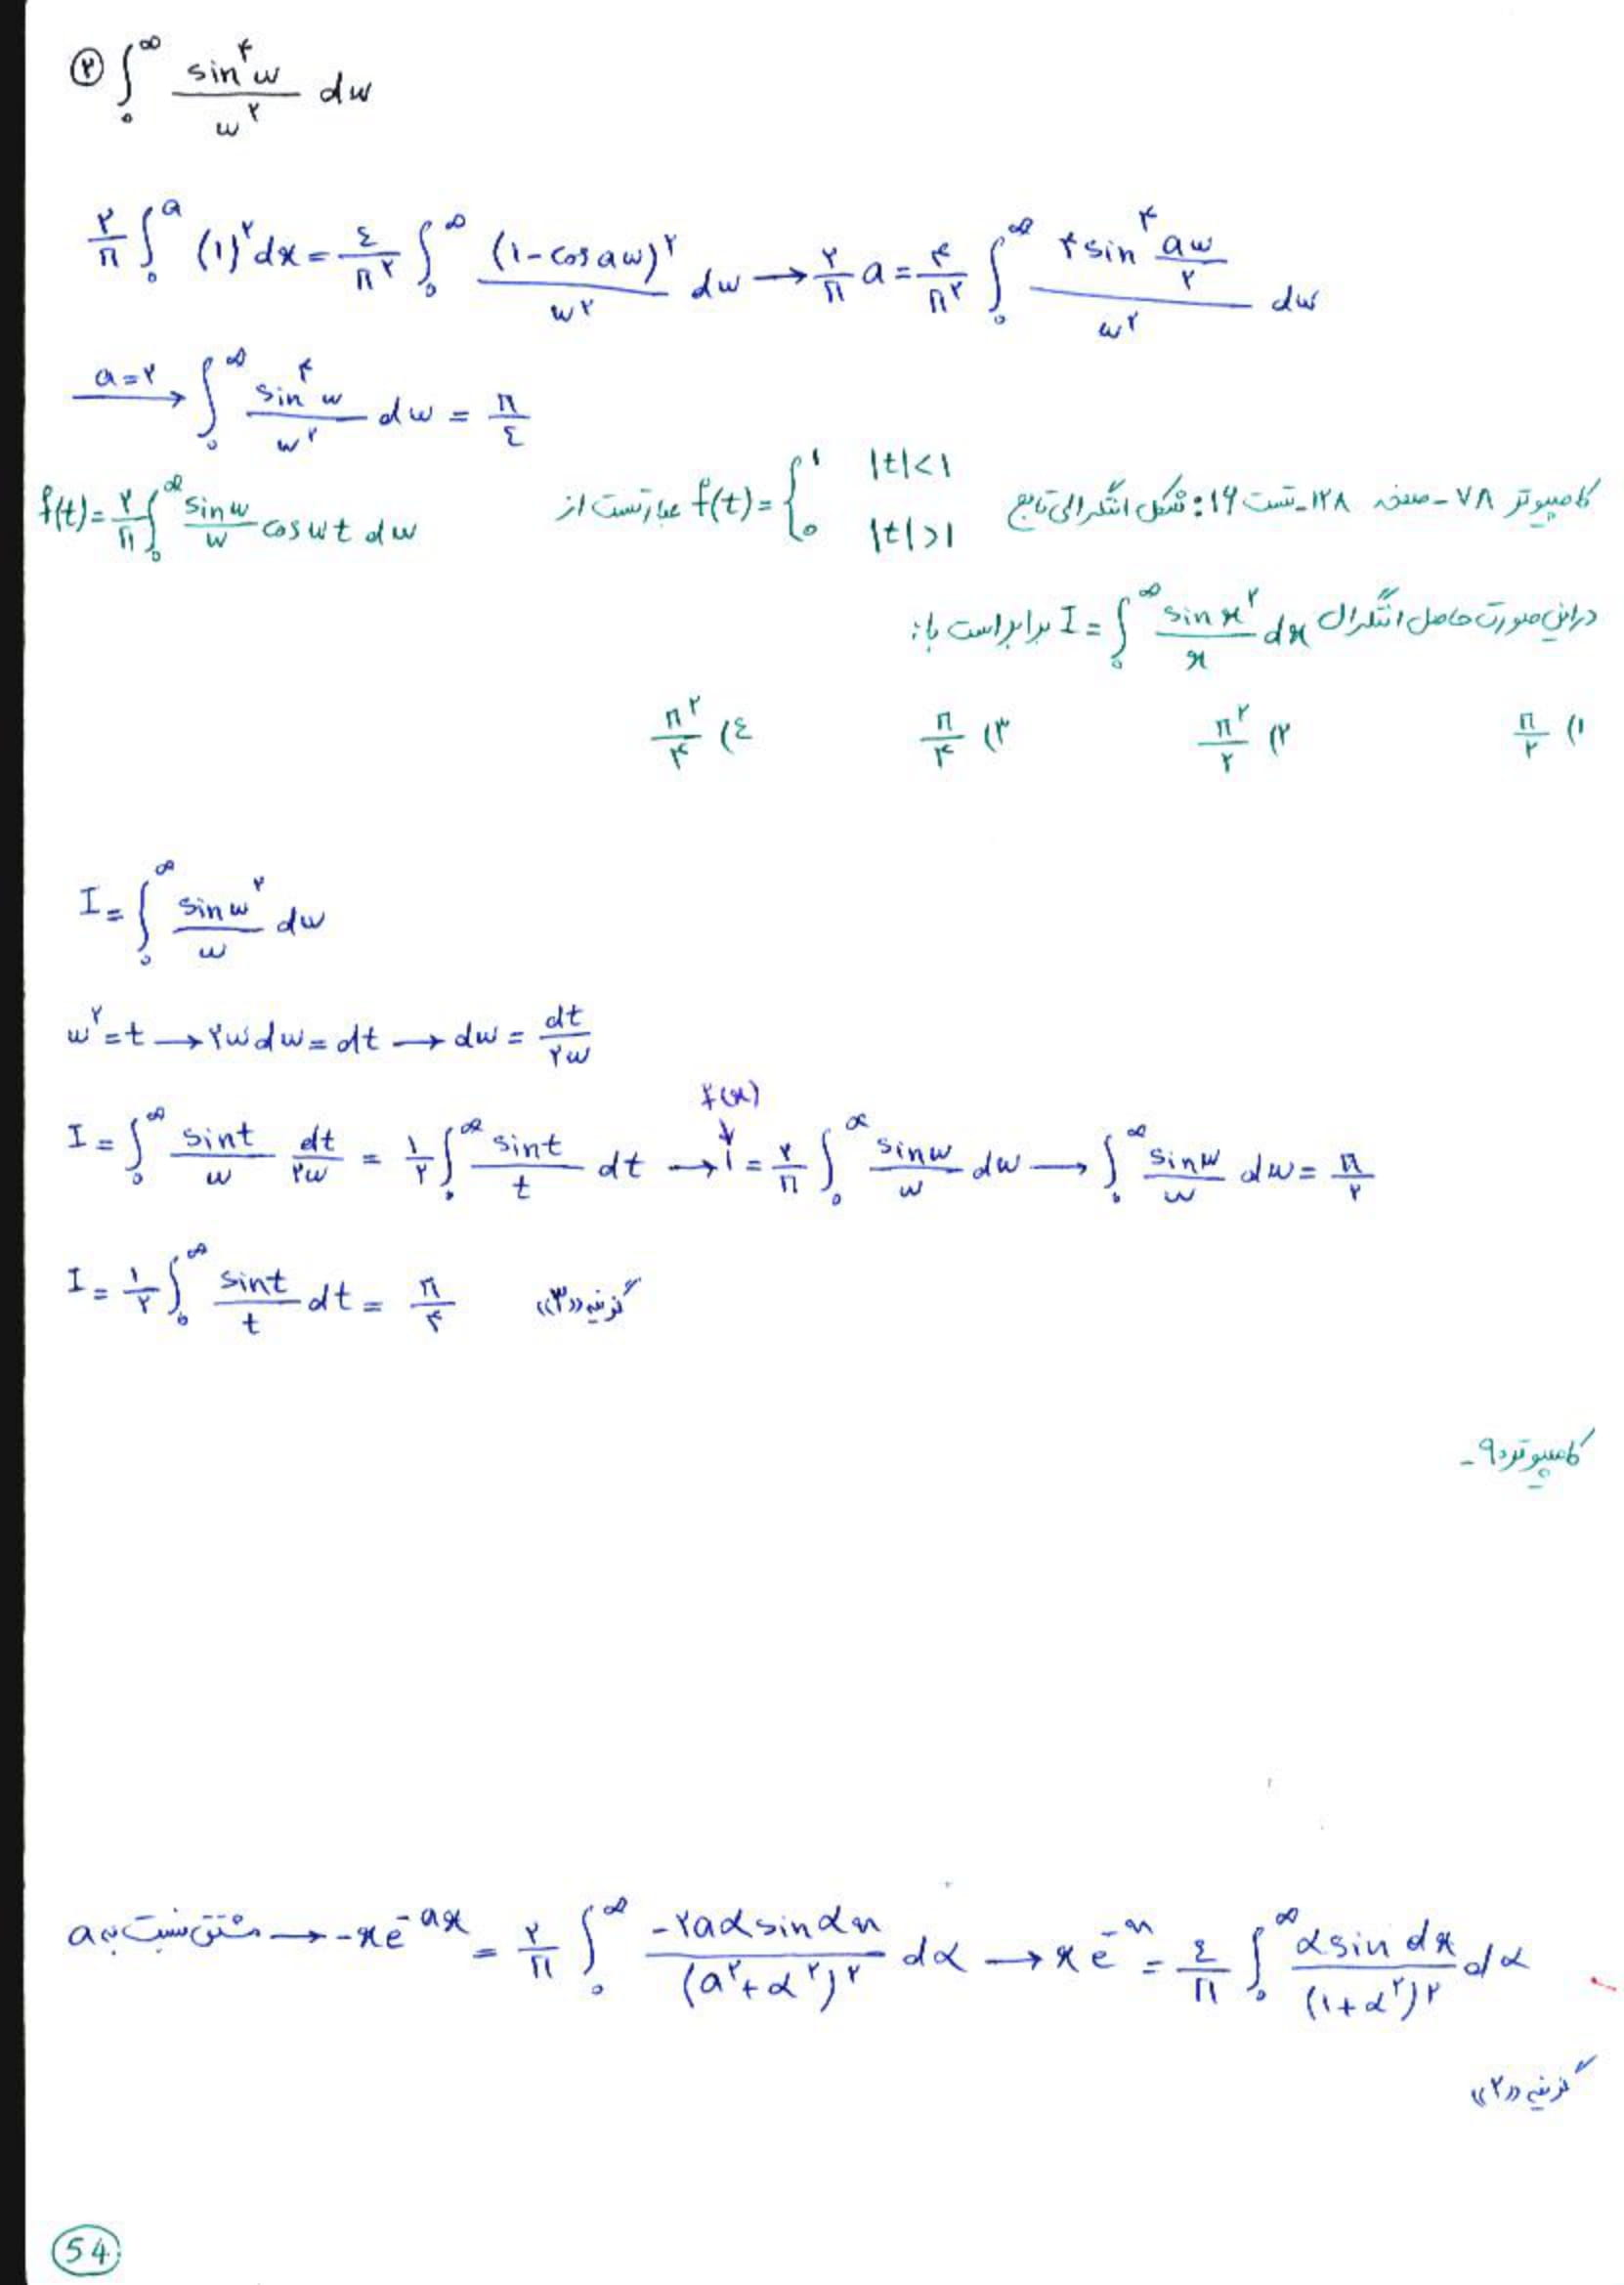 ② ∫₀^∞ sin^۴ w / w^۲ dw
۲/π ∫₀^a (۱)^۲ dx = ٤/π^۲ ∫₀^∞ (۱-cos aw)^۲ / w^۲ dw → ۲/π a = ۴/π^۲ ∫₀^∞ ۴ sin^۴ (aw/۲) / w^۲ dw
a=۲ → ∫₀^∞ sin^۴ w / w^۲ dw = π/٤
کامپیوتر ۷۸ - صفحه ۱۲۸ - تست ۱۶: شکل انتگرالی تابع f(t) = { ۱ |t|<۱ , ۰ |t|>۱ عبارتست از f(t) = ۲/π ∫₀^∞ sin w / w cos wt dw
در این صورت حاصل انتگرال I = ∫₀^∞ sin x^۲ / x dx برابر است با:
۱) π/۲ ۲) π^۲/۲ ۳) π/۴ ٤) π^۲/۴
I = ∫₀^∞ sin w^۲ / w dw
w^۲ = t → ۲w dw = dt → dw = dt/۲w
f(x)
I = ∫₀^∞ sin t / w dt/۲w = ۱/۲ ∫₀^∞ sin t / t dt → ۱ = ۲/π ∫₀^∞ sin w / w dw → ∫₀^∞ sin w / w dw = π/۲
I = ۱/۲ ∫₀^∞ sin t / t dt = π/۴ گزینه «۳»
مشتق نسبت به a → -x e^-ax = ۲/π ∫₀^∞ -۲aα sin αx / (a^۲+α^۲)^۲ dα → x e^-x = ٤/π ∫₀^∞ α sin αx / (۱+α^۲)^۲ dα
گزینه «۲»
54